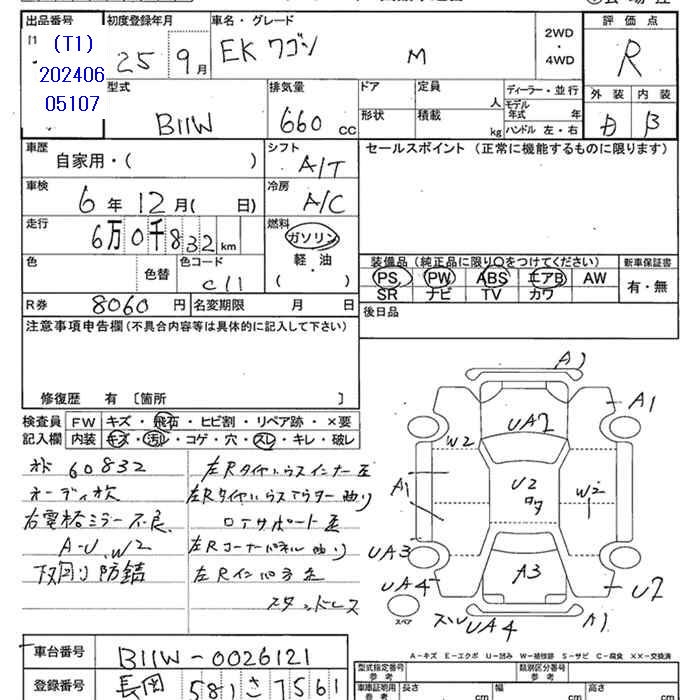 出品番号 初度登録年月 車名・グレード 2WD・4WD 評価点
(T1) 25年 9月 EKワゴン M R
202406
05107
型式 排気量 ドア 定員 人 ディーラー・並行 外装 内装
B11W 660 cc 形状 積載 kg モデル年式 年 ハンドル 左・右 B
車歴 シフト セールスポイント (正常に機能するものに限ります)
自家用・( ) A/T
車検 6年 12月( 日) 冷房 A/C
走行 6万0千832km 燃料 ガソリン
軽・油
( ・ )
色 色替 色コード C11
装備品 (純正品に限り○をつけてください) 新車保証書
PS PW ABS エアB AW 有・無
SR ナビ TV カワ
R券 8060 円 名変期限 月 日 後日品
注意事項申告欄 (不具合内容等は具体的に記入して下さい)
修復歴 有 〔箇所 〕
検査員 FW キズ・飛石・ヒビ割・リペア跡・×要
記入欄 内装 キズ・汚レ・コゲ・穴・スレ・キレ・破レ
60832 左Rタイヤハウスインナー
オーディオ欠 左Rタイヤハウスアウター曲り
右電格ミラー不良 ロアサポート
A-U、W2 左Rコーナーパネル曲り
下回り防錆 左Rインパネ
スタッドレス
A2
A1
UA2
W2
A1
U2
W2
UA3
A3
UA4
U2
スペア
UA4
A1
A−キズ E−エクボ U−凹み W−補修跡 S−サビ C−腐食 XX−交換済
車台番号 B11W-0026121
登録番号 長岡 581 さ 7561
型式指定番号 参考 類別区分番号 参考
車庫証明用 参考 長さ cm 幅 cm 高さ cm